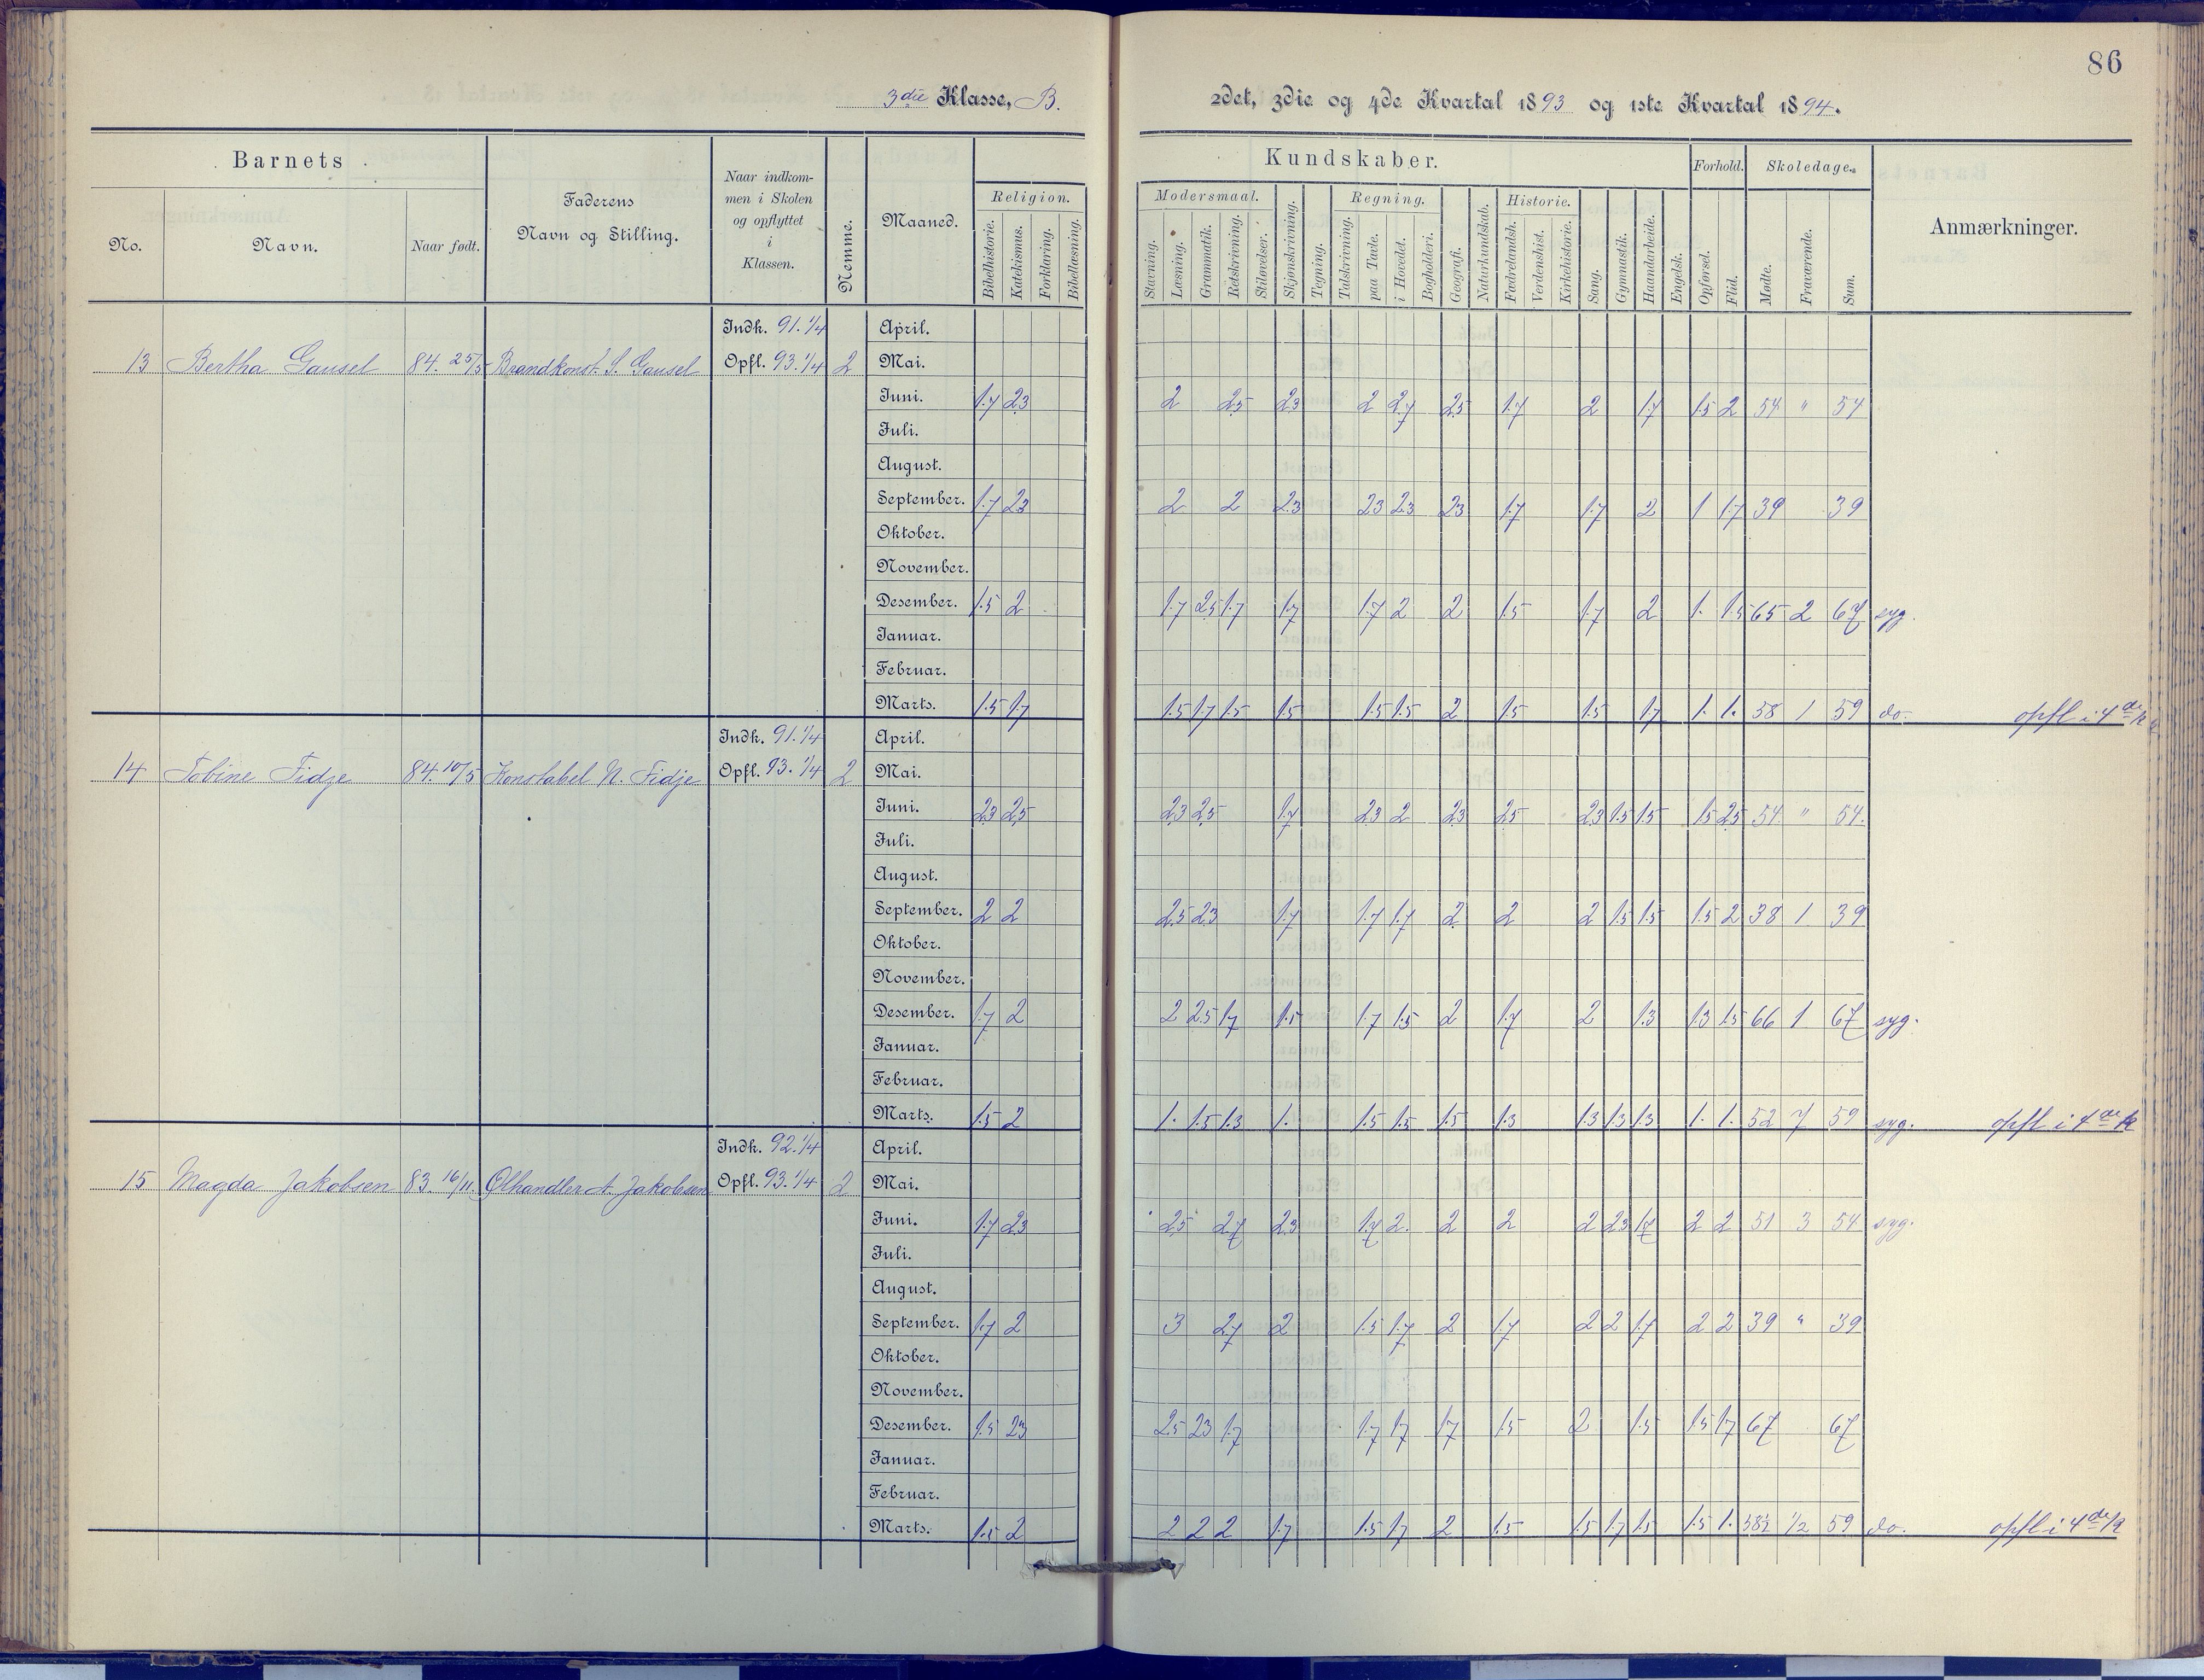 86
3die Klasse, B.
2det, 3die og 4de Kvartal 1893 og 1ste Kvartal 1894.
Barnets
No.
Navn.
Naar født.
Faderens
Navn og Stilling.
Naar indkom-
men i Skolen
og opflyttet
i
Klassen.
Nemme.
Maaned.
Religion.
Bibelhistorie.
Katekismus.
Forklaring.
Bibellæsning.
Kundskaber.
Modersmaal.
Stavning.
Læsning.
Grammatik.
Retskrivning.
Stiløvelser.
Skjønskrivning.
Tegning.
Regning.
Talskrivning.
paa Tavle.
i Hovedet.
Bogholderi.
Geografi.
Naturkundskab.
Historie.
Fædrelandsh.
Verdenshist.
Kirkehistorie.
Sang.
Gymnastik.
Haandarbeide.
Engelsk.
Forhold.
Opførsel.
Flid.
Skoledage.
Mødte.
Fraværende.
Sum.
Anmærkninger.
Indk. 91.1/4 April.
13 Bertha Gausel 84. 25/5 Brandkonst. S. Gausel Opfl. 93.1/4 2 Mai.
Juni. 1.7 2.3 2 2.5 2.3 2 2.7 2.5 1.7 2 1.7 1.5 2 54 " 54
Juli.
August.
September. 1.7 2.3 2 2 2.3 2.3 2.3 2.3 1.7 1.7 2 1 1.7 39 39
Oktober.
November.
Desember. 1.5 2 1.7 2.5 1.7 1.7 1.7 2 2 1.5 1.7 2 1. 1.5 65 2 67 syg.
Januar.
Februar.
Marts. 1.5 1.7 1.5 1.7 1.5 1.5 1.5 1.5 2 1.5 1.5 1.7 1. 1. 58 1 59 do. opfl i 4de K
Indk. 91.1/4 April.
14 Tobine Fidje 84. 10/5 Konstabel N. Fidje Opfl. 93.1/4 2 Mai.
Juni. 2.3 2.5 2.3 2.5 1.7 2.3 2 2.3 2.5 2.3 1.5 1.5 1.5 2.5 54. " 54.
Juli.
August.
September. 2 2 2.5 2.3 1.7 1.7 1.7 2 2 2 1.5 1.5 1.5 2 38 1 39
Oktober.
November.
Desember. 1.7 2 2 2.5 1.7 1.5 1.7 1.5 2 1.7 2 1.3 1.3 1.5 66 1 67 syg.
Januar.
Februar.
Marts. 1.5 2 1. 1.5 1.3 1. 1.5 1.5 1.5 1.3 1.3 1.3 1.3 1. 1. 52 7 59 syg. opfl i 4de K
Indk. 92.1/4 April.
15 Magda Jakobsen 83. 16/11. Ølhandler A. Jakobsen Opfl. 93.1/4 2 Mai.
Juni. 1.7 2.3 2.5 2.7 2.3 1.7 2. 2 2 2 2.3 1.7 2 2 51 3 54 syg.
Juli.
August.
September. 1.7 2 3 2.7 2 1.5 1.7 2 1.7 2 2 1.7 2 2 39 " 39
Oktober.
November.
Desember. 1.5 2.3 2.5 2.3 1.7 1.7 1.7 1.7 1.5 2 1.5 1.5 1.7 67 67
Januar.
Februar.
Marts. 1.5 2 2 2 2 1.7 1.5 1.7 2 1.5 1.5 1.7 1.5 1.5 1. 58½ ½ 59 do. opfl i 4de K